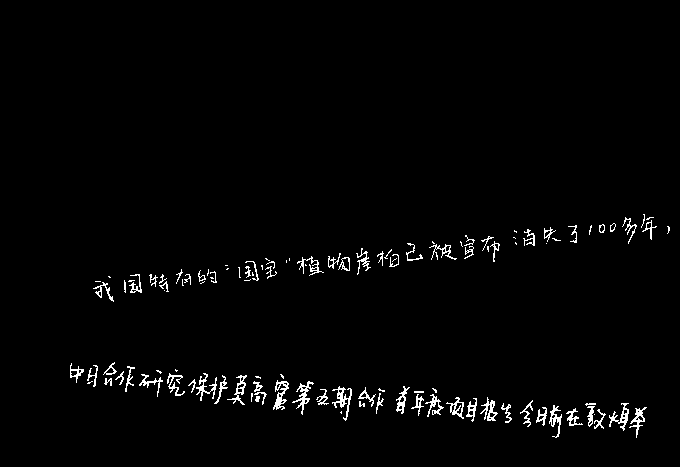 我国特有的“国宝”植物崖柏已被宣布消失了100多年，
中日合作研究保护莫高窟第五期合作首年度项目报告会日前在敦煌举